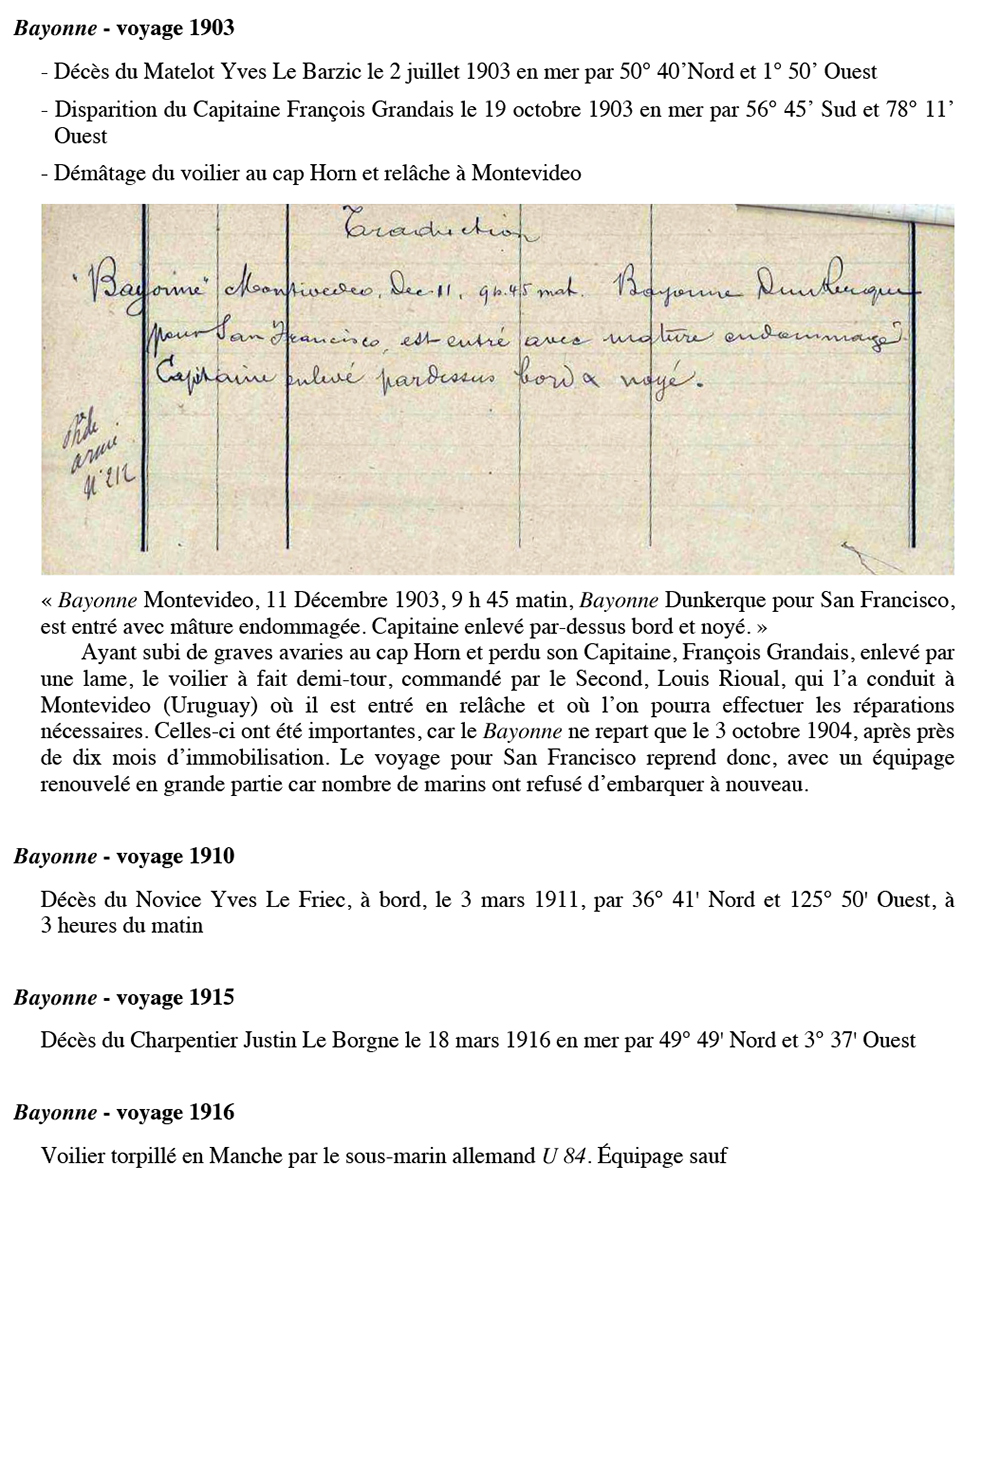 Bayonne - voyage 1903
- Décès du Matelot Yves Le Barzic le 2 juillet 1903 en mer par 50° 40’Nord et 1° 50’ Ouest
- Disparition du Capitaine François Grandais le 19 octobre 1903 en mer par 56° 45’ Sud et 78° 11’
Ouest
- Démâtage du voilier au cap Horn et relâche à Montevideo
Traduction
"Bayonne" Montivedeo, Dec 11, 9h.45 mat. Bayonne Dunkerque
pour San Francisco, est entré avec mâture endommagé
Capitaine enlevé pardessus bord & noyé.
armé
N° 212
« Bayonne Montevideo, 11 Décembre 1903, 9 h 45 matin, Bayonne Dunkerque pour San Francisco,
est entré avec mâture endommagée. Capitaine enlevé par-dessus bord et noyé. »
Ayant subi de graves avaries au cap Horn et perdu son Capitaine, François Grandais, enlevé par
une lame, le voilier à fait demi-tour, commandé par le Second, Louis Rioual, qui l’a conduit à
Montevideo (Uruguay) où il est entré en relâche et où l’on pourra effectuer les réparations
nécessaires. Celles-ci ont été importantes, car le Bayonne ne repart que le 3 octobre 1904, après près
de dix mois d’immobilisation. Le voyage pour San Francisco reprend donc, avec un équipage
renouvelé en grande partie car nombre de marins ont refusé d’embarquer à nouveau.
Bayonne - voyage 1910
Décès du Novice Yves Le Friec, à bord, le 3 mars 1911, par 36° 41' Nord et 125° 50' Ouest, à
3 heures du matin
Bayonne - voyage 1915
Décès du Charpentier Justin Le Borgne le 18 mars 1916 en mer par 49° 49' Nord et 3° 37' Ouest
Bayonne - voyage 1916
Voilier torpillé en Manche par le sous-marin allemand U 84. Équipage sauf